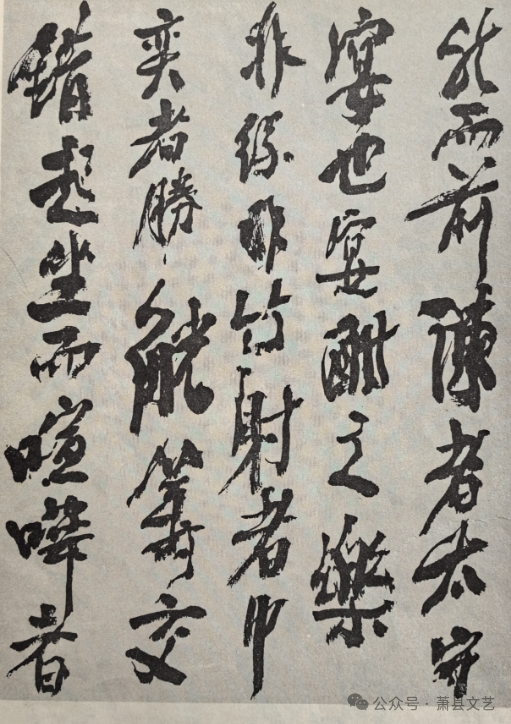 然而前陳者太守
宴也宴酣之樂
非絲非竹射者中
奕者勝觥籌交
錯起坐而喧嘩者
公众号·萧县文艺